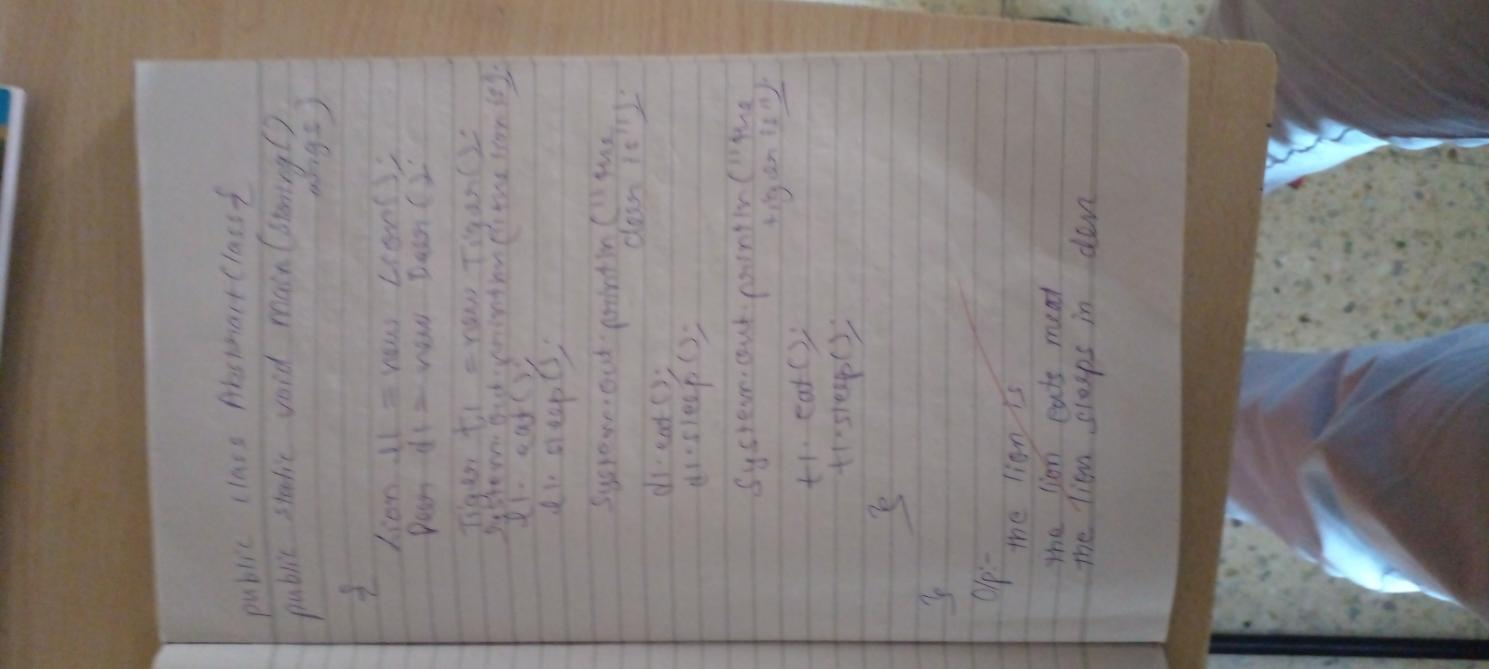 public class AbstractClass{
public static void main(String()
args)
{
Lion l1 = new Lion();
Deer d1 = new Deer();
Tiger t1 = new Tiger();
System.out.println("the lion is");
l1. eat();
l1. sleep();
System.out.println("the
deer is");
d1.eat();
d1.sleep();
System.out.println("the
tiger is");
t1. eat();
t1.sleep();
}
}
O/p:-
the lion is
the lion eats meat
the lion sleeps in den